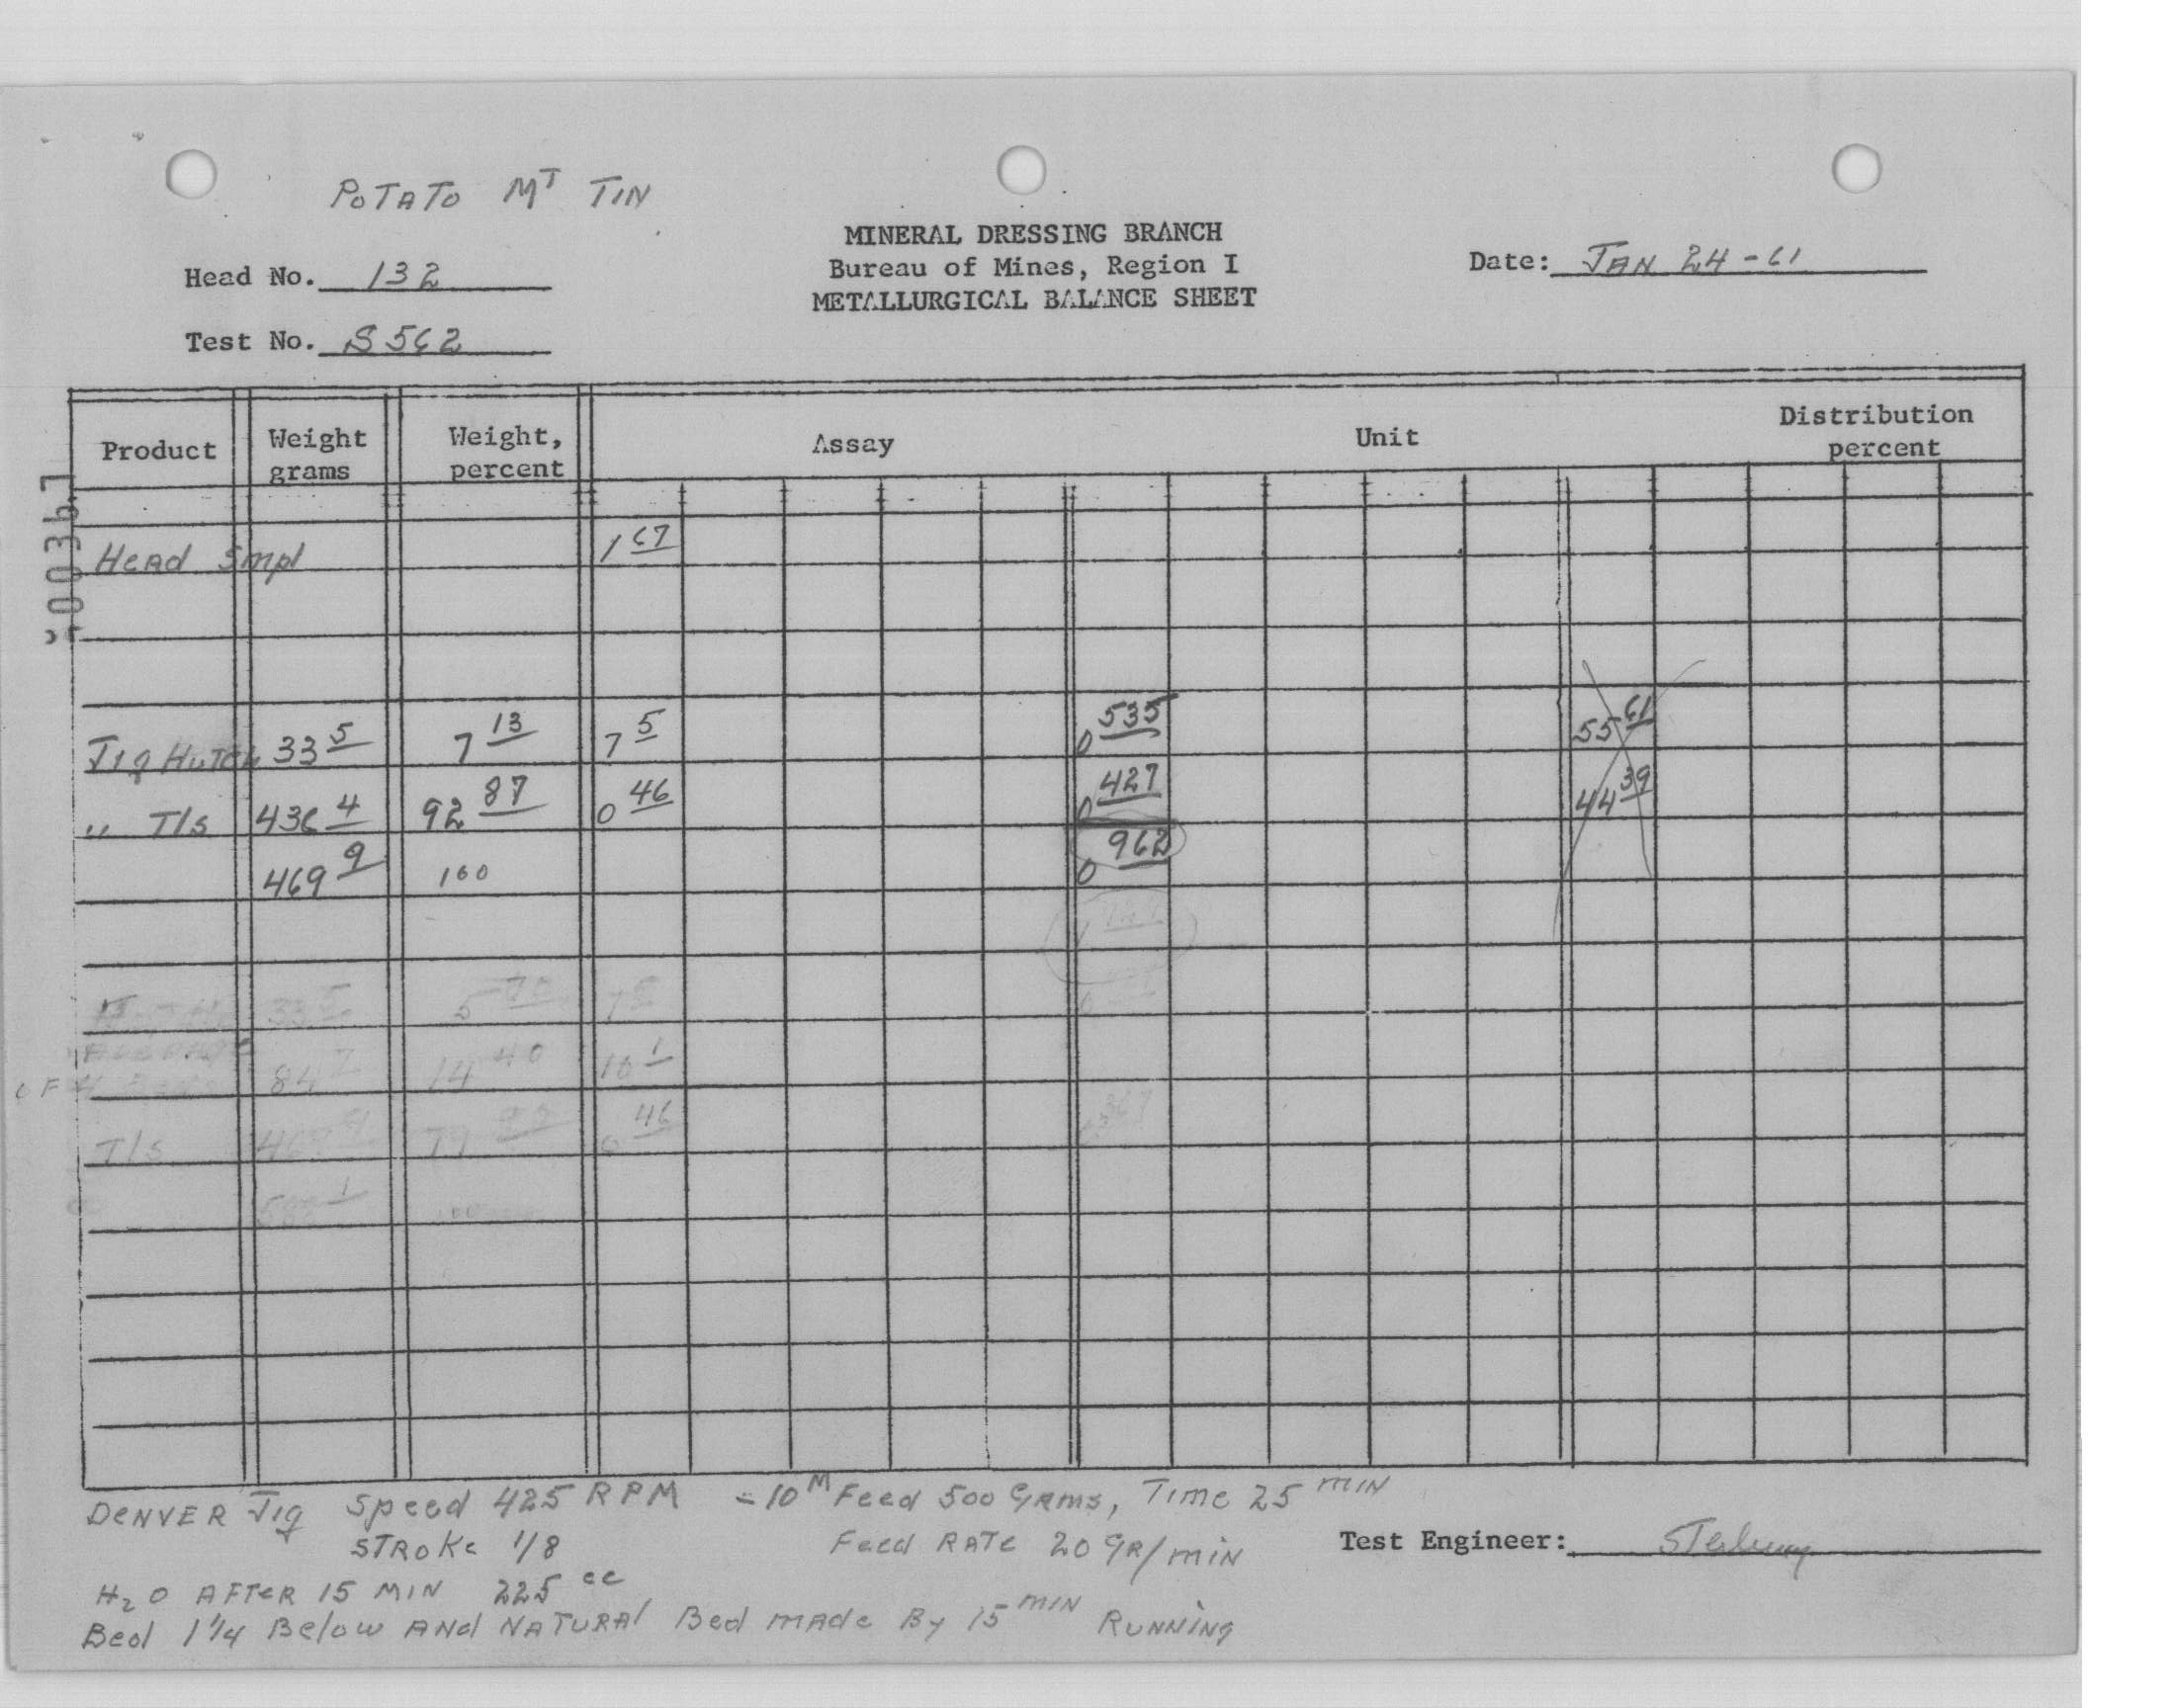 POTATO MT TIN
MINERAL DRESSING BRANCH
Bureau of Mines, Region I
METALLURGICAL BALANCE SHEET
Head No. 132
Date: JAN 24-61
Test No. S562
Product Weight grams Weight, percent Assay Unit Distribution percent
Head Smpl 1 67
Jig Hutch 33 5 7 13 7 5 0 535 55 61
" T/s 436 4 92 87 0 46 0 427 44 39
469 9 100 0 962
33 5 5 7 5
OF 84 7 14 40 10 1
T/s 79 0 46 367
1 100
DENVER Jig Speed 425 RPM -10 M Feed 500 Grams, Time 25 MIN
STROKE 1/8 Feed RATE 20 GR/min
Test Engineer:
H2O AFTER 15 MIN 225 cc
Bed 1 1/4 Below AND NATURAL Bed made By 15 MIN RUNNING